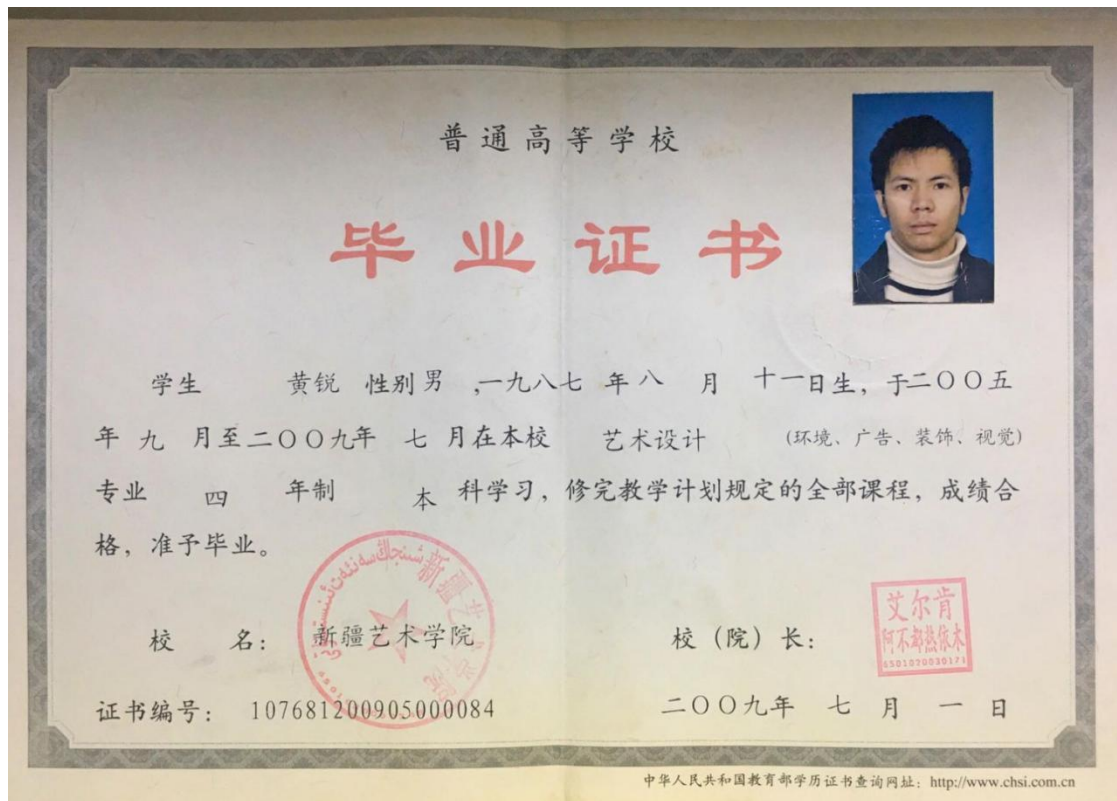 普通高等学校
毕业证书
学生 黄锐 性别 男 ,一九八七 年 八 月 十一日生，于二〇〇五
年 九 月至二〇〇九年 七 月在本校 艺术设计 (环境、广告、装饰、视觉)
专业 四 年制 本 科学习，修完教学计划规定的全部课程，成绩合
格，准予毕业。
新疆艺术学院
校 名： 新疆艺术学院
校（院）长：
艾尔肯
阿不都热依木
6501020030171
证书编号： 107681200905000084
二〇〇九年 七 月 一 日
中华人民共和国教育部学历证书查询网址：http://www.chsi.com.cn